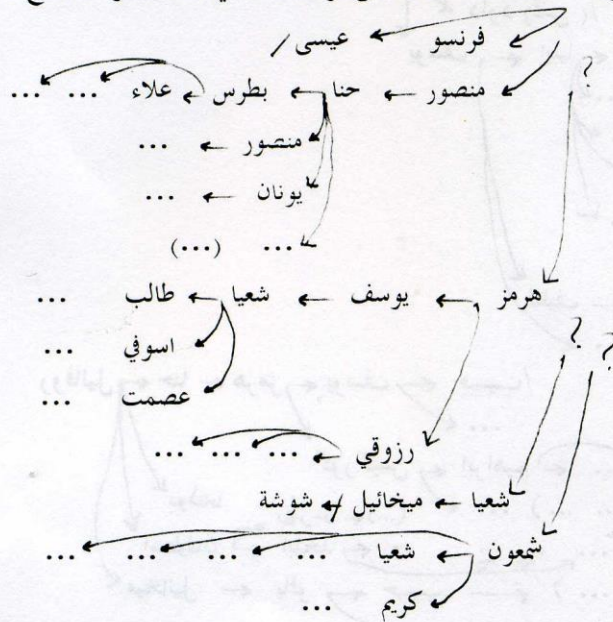 فرنسو عيسى
؟ منصور حنا بطرس علاء ... ...
منصور ...
يونان ...
... (...)
هرمز يوسف شعيا طالب ...
اسوفي ...
عصمت ...
؟ ؟
رزوقي ... ... ...
شعيا ميخائيل شوشة
شمعون شعيا ... ... ... ...
كريم ...